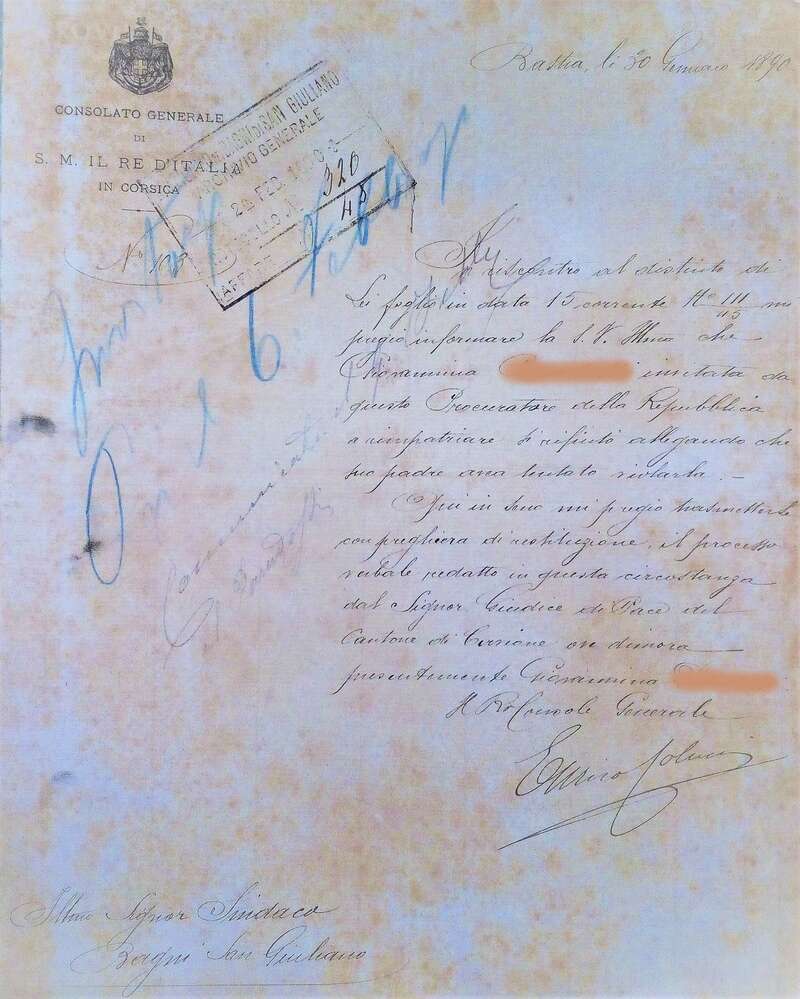 Bastia, li 30 Gennaio 1890
CONSOLATO GENERALE
DI
S. M. IL RE D'ITALIA
IN CORSICA
N.°
BAGNI DI SAN GIULIANO
ARCHIVIO GENERALE
24 FEB. 1890
320
48
riscontro al distinto di
Lei foglio in data 15 corrente N.° 111/45 mi
pregio informare la S. V. Illma che
Giovannina invitata da
questo Procuratore della Repubblica
a rimpatriare si rifiutò allegando che
suo padre avea tentato violarla. —
Qui in seno mi pregio trasmetterle
con preghiera di restituzione, il processo
verbale redatto in questa circostanza
dal Signor Giudice di Pace del
Cantone di ove dimora
presentemente Giovannina
Il R.º Console Generale
Enrico
Comunicato
Illmo Signor Sindaco
Bagni San Giuliano